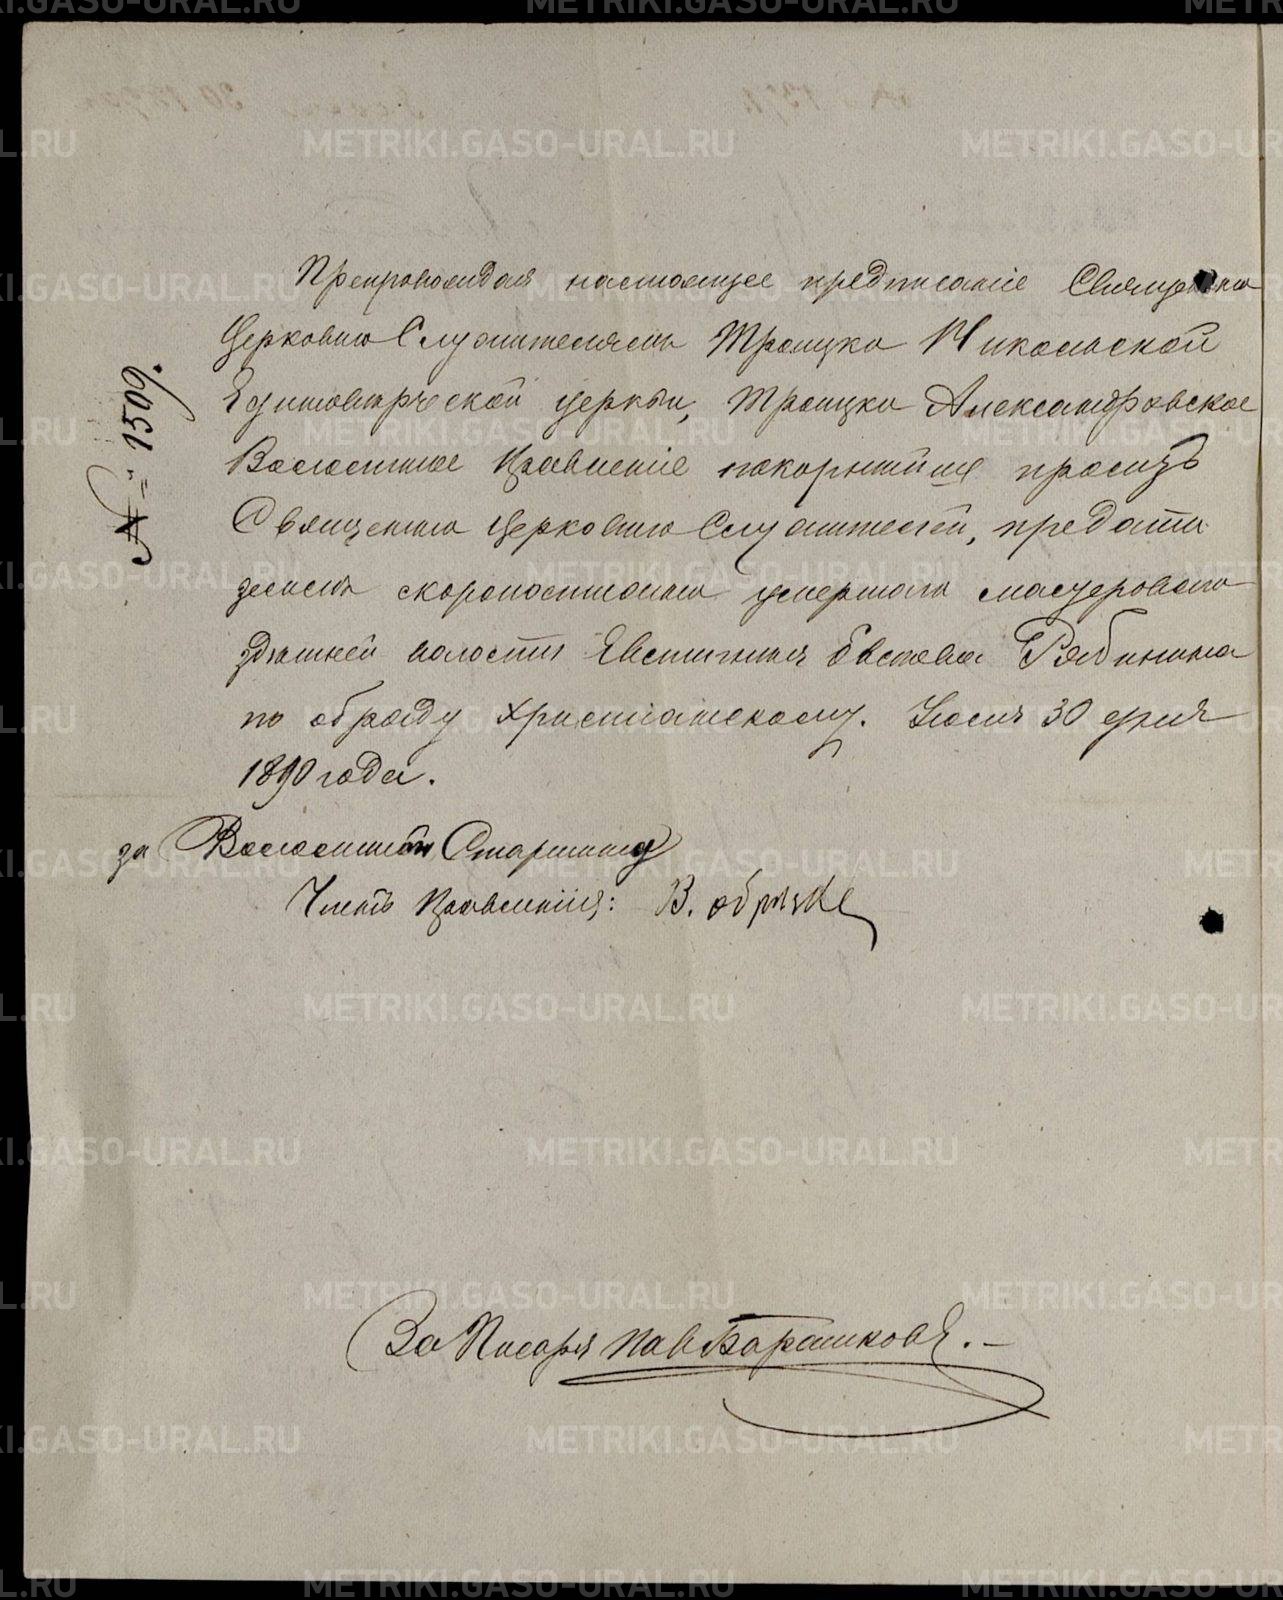 № 1509.
Препровождая настоящее предписаніе Священно
Церковно Служителямъ Троицко Никольской
Единоверческой церкви, Троицко Александровское
Волостное Правленіе покорнѣйше проситъ
Священно Церковно Служителей, предать
землѣ скоропостижно умершаго мастероваго
здѣшней волости Евстигнея Рябинина
по обряду христіанскому. Іюля 30 дня
1890 года.
за Волостной Старшина
Членъ Правленія: В.
За Писаря Пав Барашковъ.